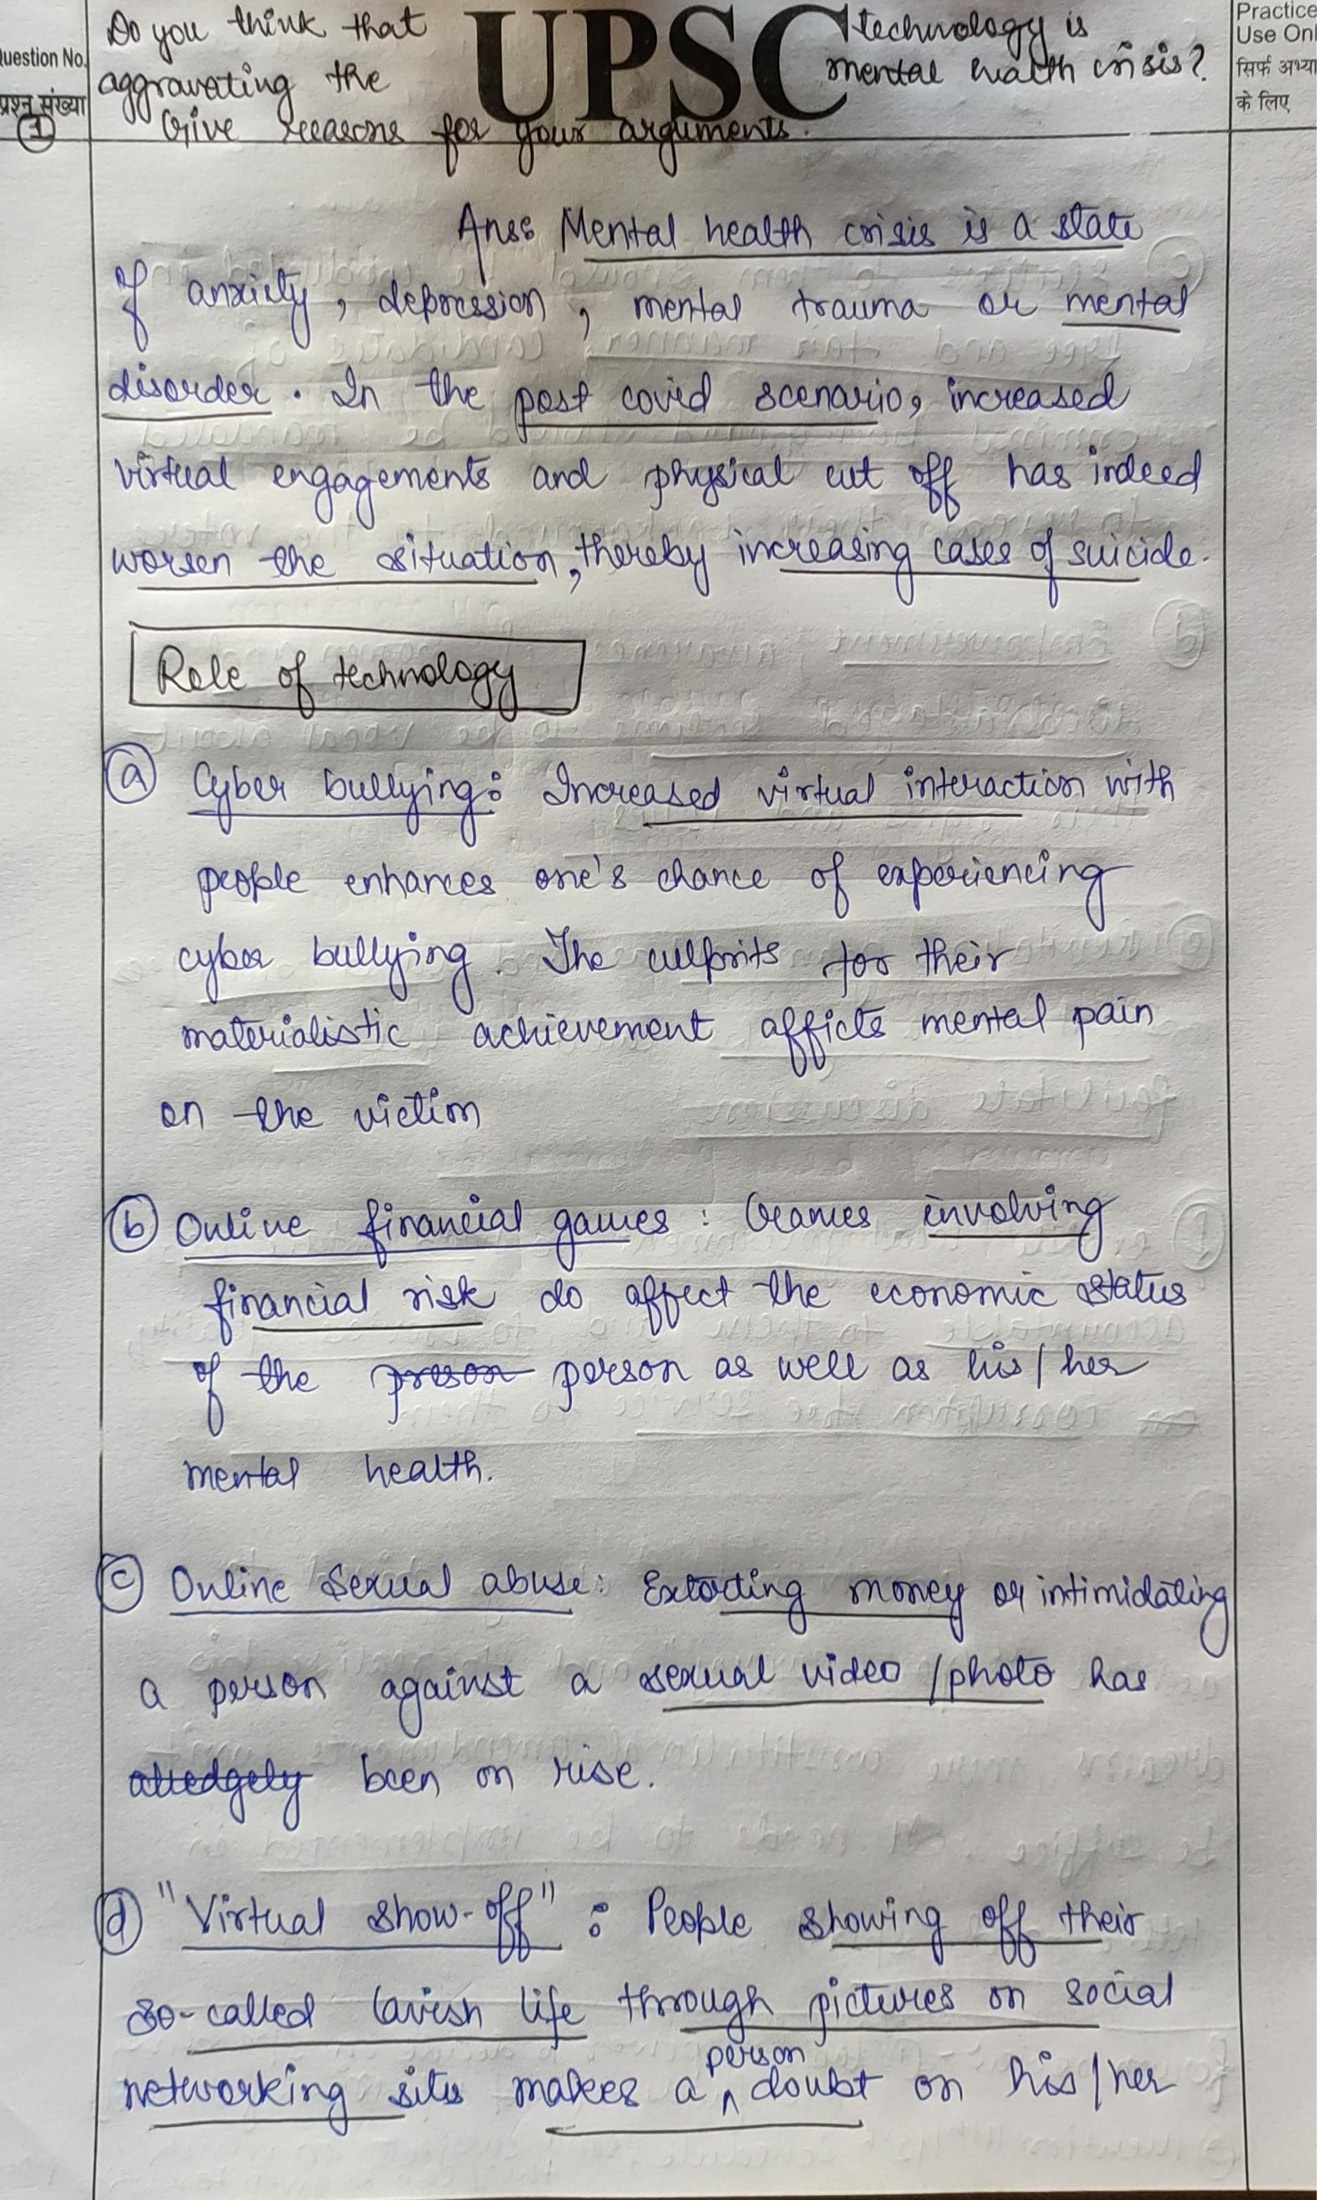 Question No.
प्रश्न संख्या
1
UPSC
Practice
Use Onl
सिर्फ अभ्या
के लिए
Do you think that technology is
aggravating the mental health crisis?
Give reasons for your arguments.
Ans: Mental health crisis is a state
of anxiety, depression, mental trauma or mental
disorder. In the post covid scenario, increased
virtual engagements and physical cut off has indeed
worsen the situation, thereby increasing cases of suicide.
Role of technology
a Cyber bullying: Increased virtual interaction with
people enhances one's chance of experiencing
cyber bullying. The culprits for their
materialistic achievement afficts mental pain
on the victim
b Online financial games: Games involving
financial risk do affect the economic status
of the preson person as well as his/her
mental health.
c Online Sexual abuse: Extorting money or intimidating
a person against a sexual video/photo has
alledgely been on rise.
d "Virtual show-off": People showing off their
so-called lavish life through pictures on social
networking sites makes a person doubt on his/her